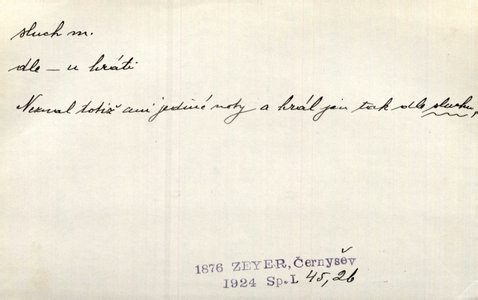 sluch m.
dle – u hráti
Neznal totiž ani jediné noty a hrál jen tak dle sluchu,
1876 ZEYER, Černyšev
1924 Sp.I 45,26